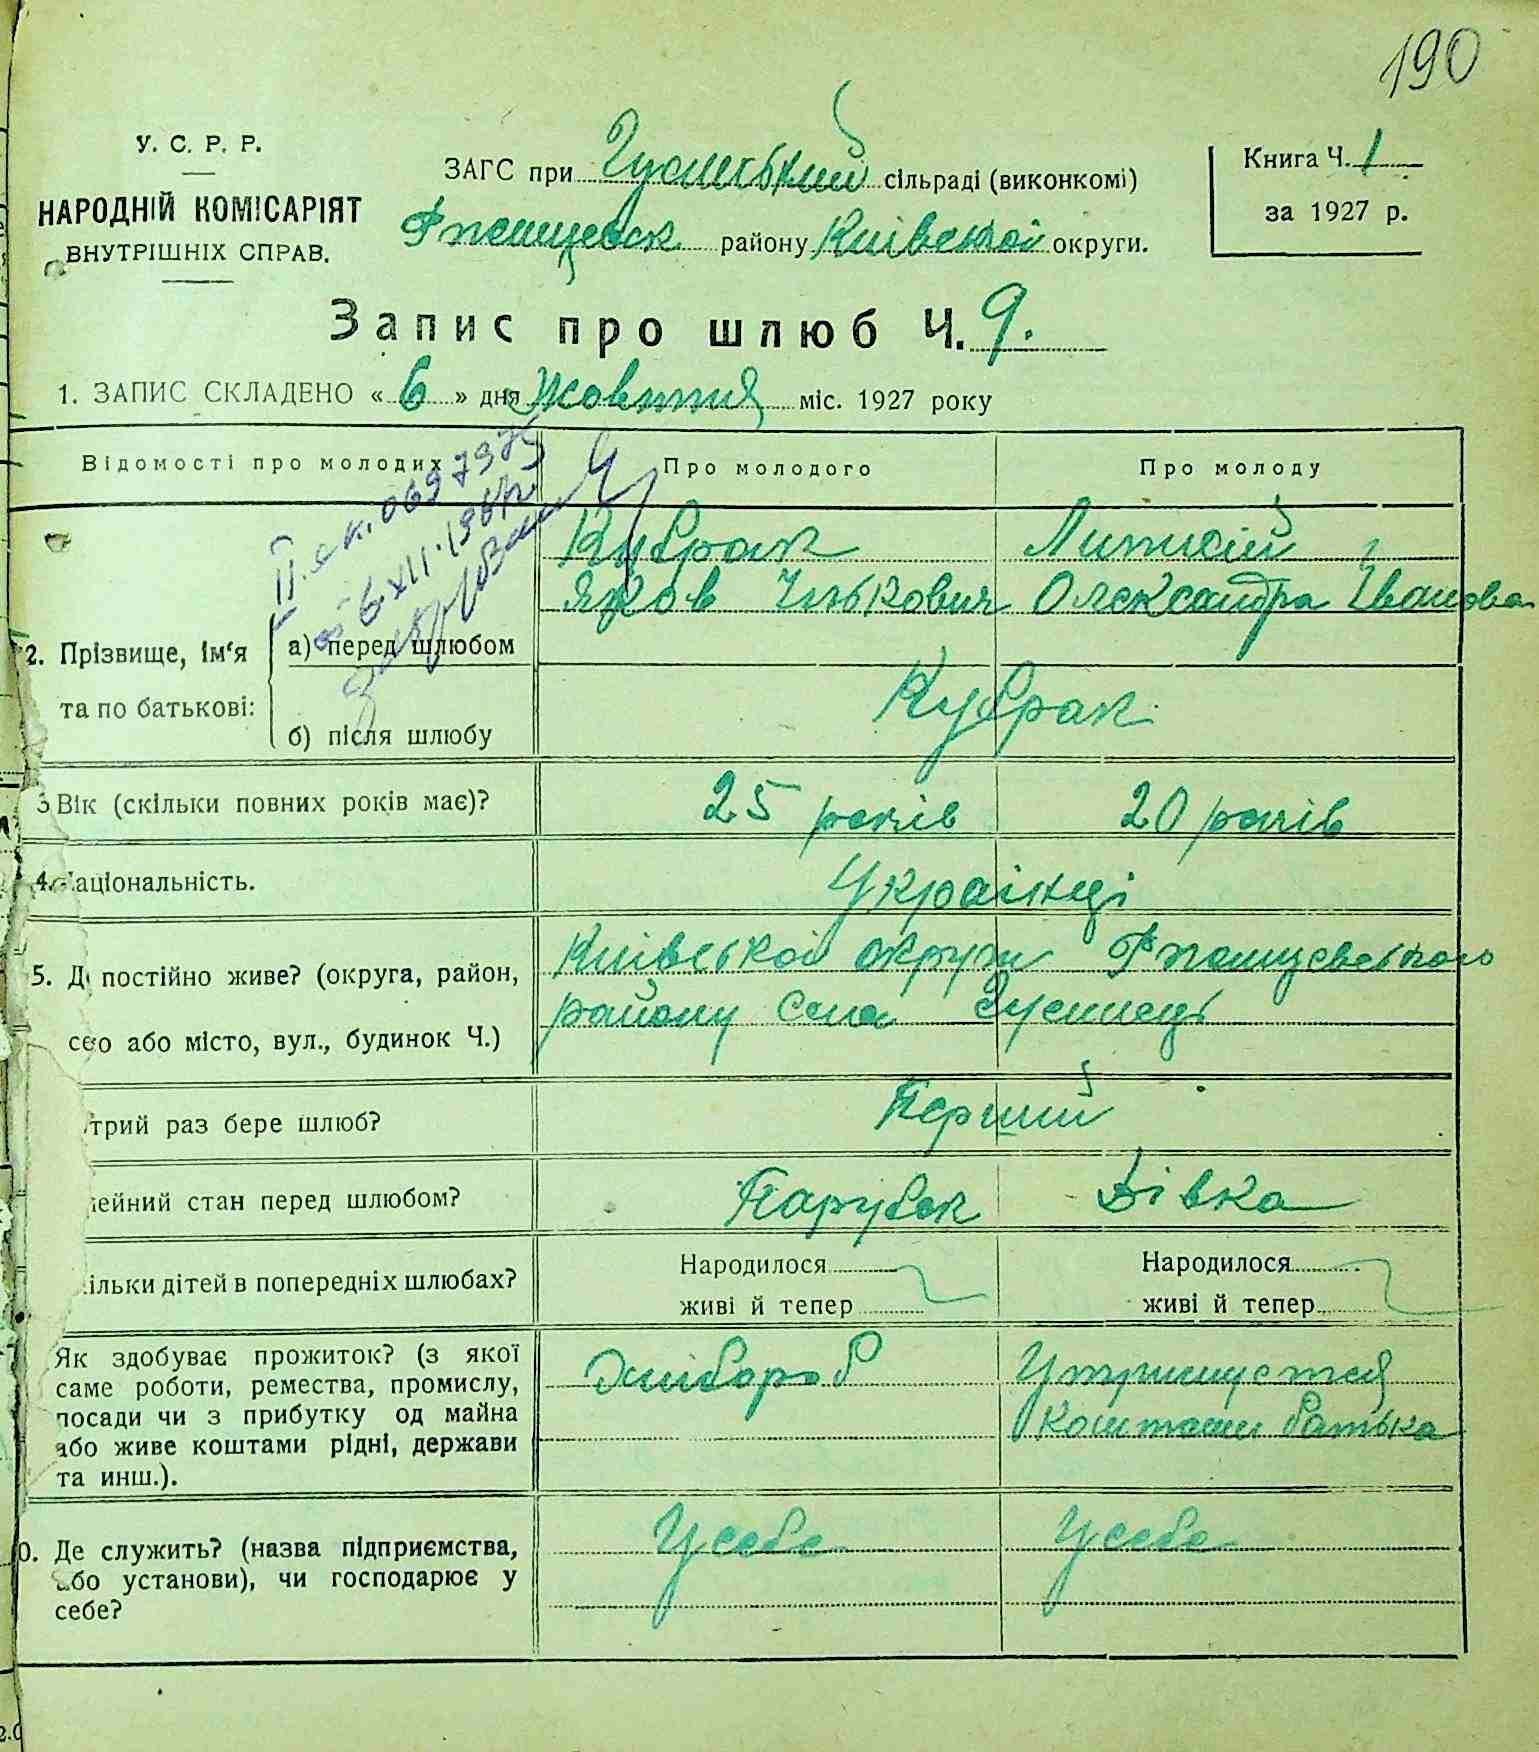 190
У. С. Р. Р.
НАРОДНІЙ КОМІСАРІЯТ
ВНУТРІШНІХ СПРАВ.
ЗАГС при сільраді (виконкомі)
району Київської округи.
Книга Ч. 1
за 1927 р.
Запис про шлюб Ч. 9.
1. ЗАПИС СКЛАДЕНО « 6 » дня Жовтня міс. 1927 року
Відомості про молодих
Про молодого
Про молоду
Кубрак
Яков Ількович
Олександра Іванова
2. Прізвище, ім'я
та по батькові:
а) перед шлюбом
б) після шлюбу
Кубрак
3 Вік (скільки повних років має)?
25 років
20 років
4. аціональність.
Українці
5. Д постійно живе? (округа, район,
се о або місто, вул., будинок Ч.)
Київської округи
району села
трий раз бере шлюб?
Перший
ейний стан перед шлюбом?
Парубок
Дівка
ільки дітей в попередніх шлюбах?
Народилося
живі й тепер
Народилося
живі й тепер
Як здобуває прожиток? (з якої
саме роботи, ремества, промислу,
посади чи з прибутку од майна
або живе коштами рідні, держави
та инш.).
Хлібороб
Утримуется
коштами батька
0. Де служить? (назва підприємства,
або установи), чи господарює у
себе?
У себе
У себе